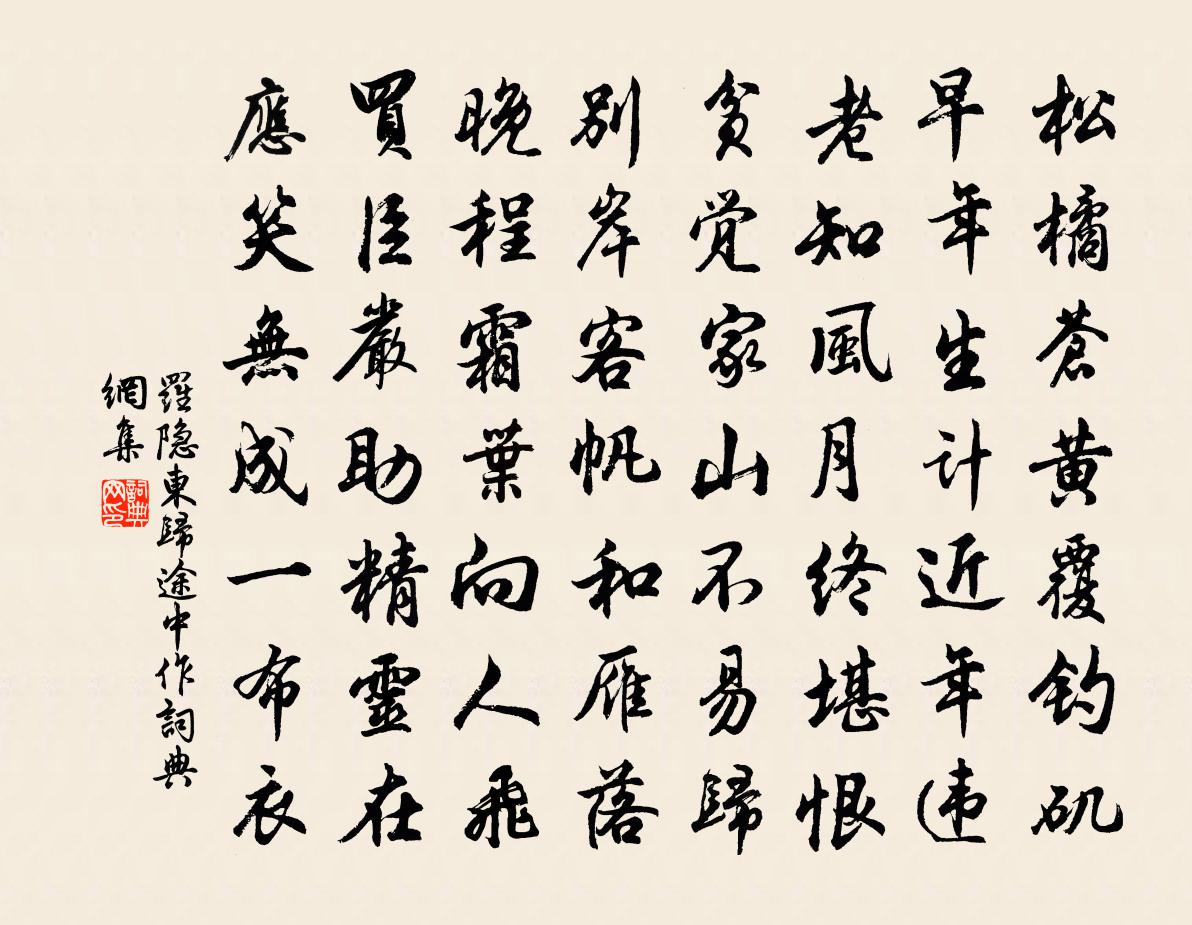 松橘蒼黃覆釣矶
早年生计近年违
老知風月终堪恨
貧覺家山不易歸
别岸客帆和雁落
晚程霜葉向人飛
買臣嚴助精靈在
應笑無成一布衣
羅隐東歸途中作詞典
網集
詞典
网印